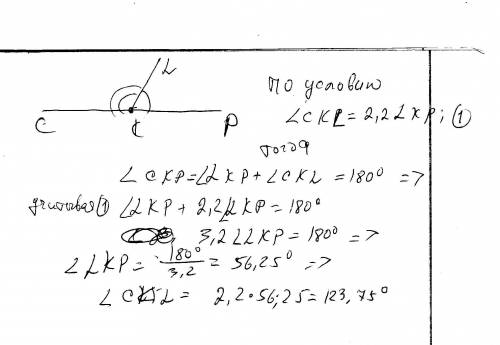 L
C K P
по условию
∠CKL = 2,2∠LKP; ①
тогда
∠CKP = ∠LKP + ∠CKL = 180° =>
учитывая ① ∠LKP + 2,2∠LKP = 180°
3,2∠LKP = 180° =>
∠LKP = 180°/3,2 = 56,25° =>
∠CKL = 2,2·56,25 = 123,75°